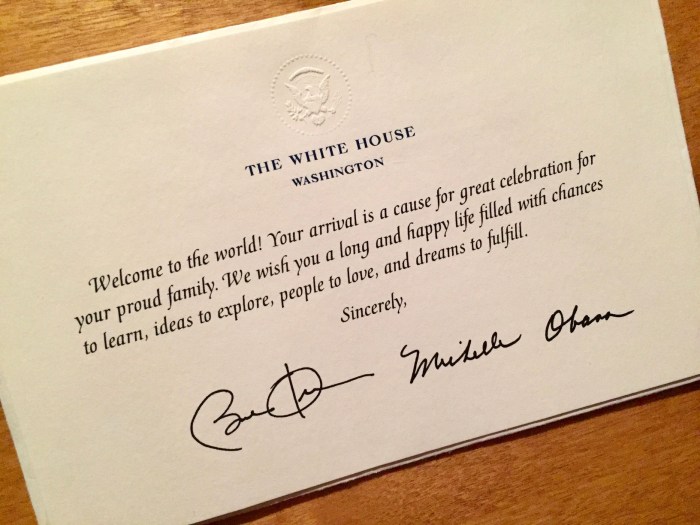 THE WHITE HOUSE
WASHINGTON
Welcome to the world! Your arrival is a cause for great celebration for
your proud family. We wish you a long and happy life filled with chances
to learn, ideas to explore, people to love, and dreams to fulfill.
Sincerely,
Michelle Obama